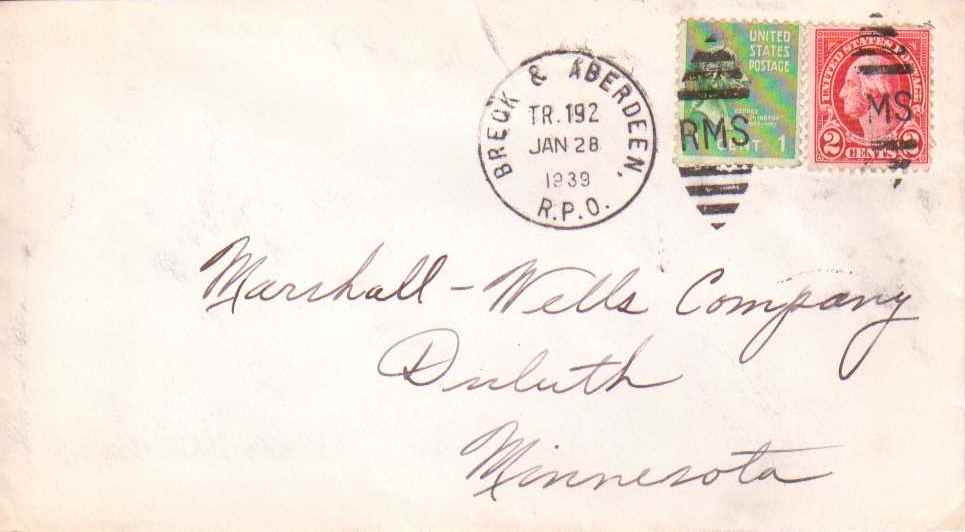 BRECK & ABERDEEN,
TR. 192
JAN 28
1939
R.P.O.
UNITED
STATES
POSTAGE
RMS
CENT 1
UNITED STATES POSTAGE
MS
2 CENTS 2
Marshall - Wells Company
Duluth
Minnesota